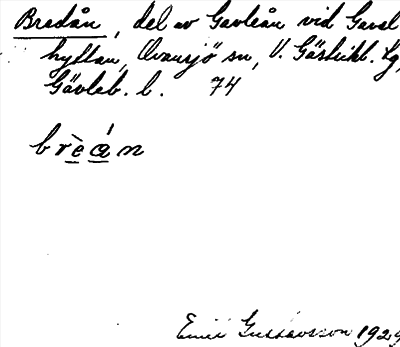 Bredån, del av Gavleån vid Gavel
hyttan, Ovansjö sn, V. Gästrikl. Lg,
Gävleb. l. 74
brèán
Emil Gustavsson 1929